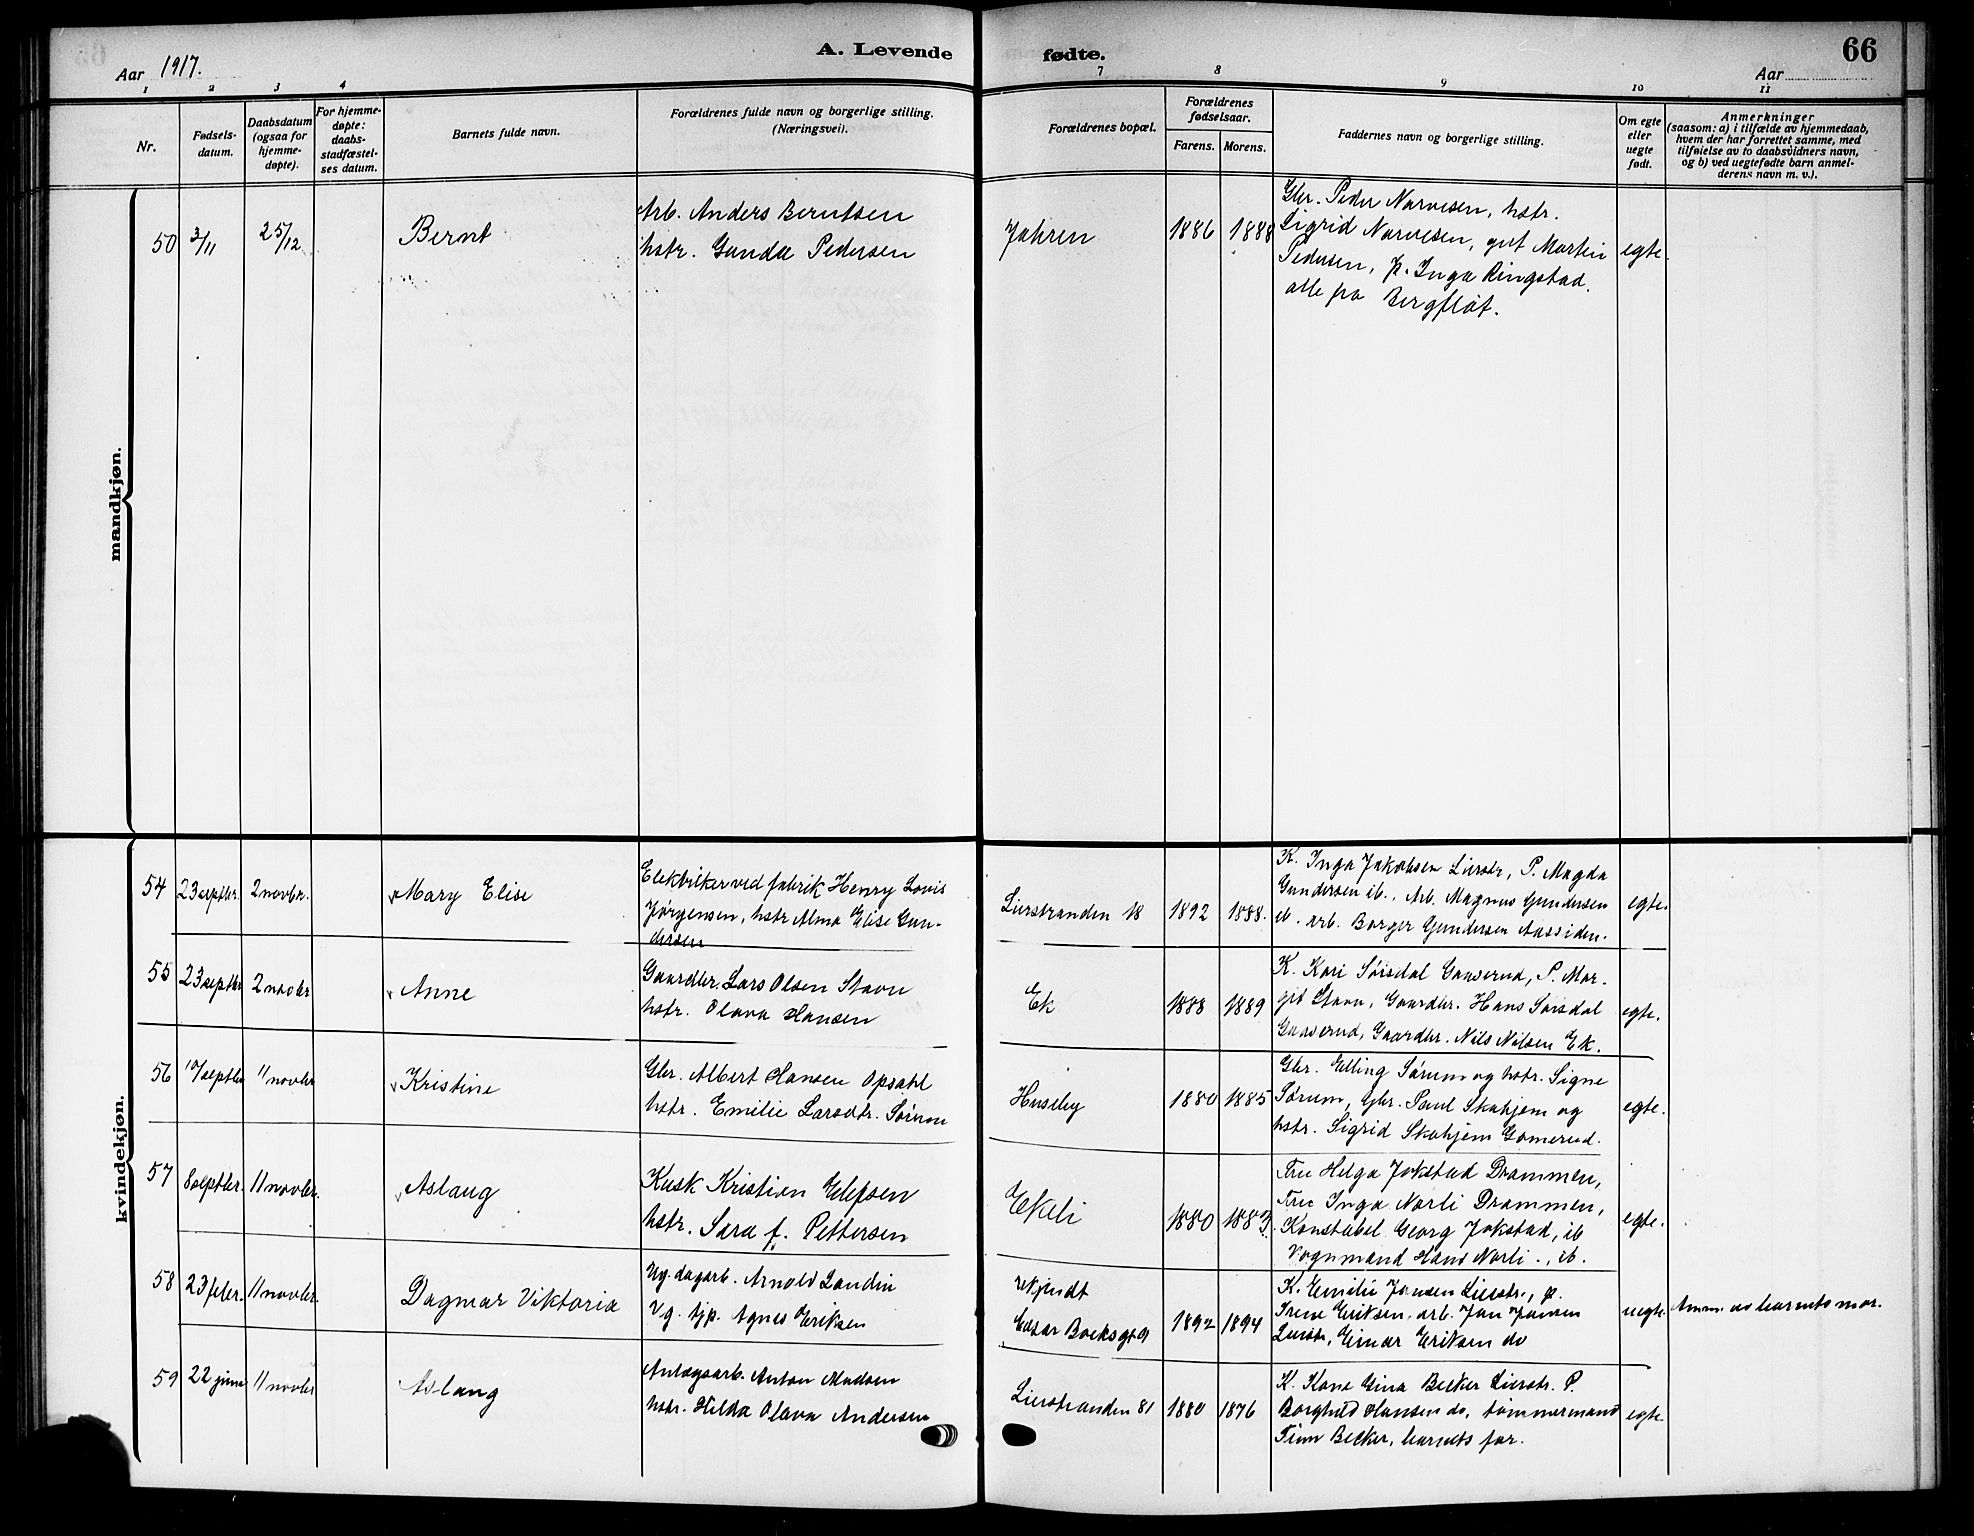 Aar 1917.
A. Levende fødte.
66
Aar
1 2 3 4 7 8 9 10 11
Nr.
Fødsels-
datum.
Daabsdatum
(ogsaa for
hjemme-
døpte).
For hjemme-
døpte:
daabs-
stadfæstel-
ses datum.
Barnets fulde navn.
Forældrenes fulde navn og borgerlige stilling.
(Næringsvei).
Forældrenes bopæl.
Forældrenes
fødselsaar.
Farens. Morens.
Faddernes navn og borgerlige stilling.
Om egte
eller
uegte
født.
Anmerkninger
(saasom: a) i tilfælde av hjemmedaab,
hvem der har forrettet samme, med
tilføielse av to daabsvidners navn,
og b) ved uegtefødte barn anmel-
derens navn m. v.).
mandkjøn.
50 3/11 25/12 Bernt
Arb. Anders Berntsen
hstr. Gunda Pedersen
Jahren 1886 1888
Gbr. Peder Narvesen, hstr.
Sigrid Narvesen, gut Martin
Pedersen, p. Inga Ringstad.
alle fra Bergflöt.
egte.
kvindekjøn.
54 23 septbr. 2 novbr. Mary Elise
ved fabrik Henry Lovis
Jørgensen, hstr Alma Elise Gun-
dersen
Lierstranden 18 1892 1888.
K. Inga Jakobsen Lierstr, P. Magda
Gundersen ib., Arb. Magnus Gundersen
ib. arb. Borger Gundersen Aassiden.
egte.
55 23 septbr 2 novbr Anne
Gaardbr. Lars Olsen Stavn
hstr. Olava Hansen
Ek 1888 1889
K. Kari Sørsdal Gaaserud, P. Mar-
git Stavn, Gaardbr. Hans Sørsdal
Gaaserud, Gaardbr. Nils Nilsen Ek.
egte.
56 septbr 11 novbr Kristine
Gbr. Albert Hansen Opsahl
hstr. Emilie Larsdtr. Sørum
Huseby 1880 1885
Gbr. Elling Sørum og hstr. Signe
Sørum, Gbr. Paul Skahjem og
hstr. Sigrid Skahjem Gomerud.
egte.
57 8 septbr. 11 novbr. Aslaug
Kusk Kristian Ellefsen
hstr. Sara f. Pettersen
Ekeli 1880 1883.
Fru Helga Jokstad Drammen,
Fru Inga Narli Drammen,
Konstabel Georg Jokstad, ib
Vognmand Hans Narli., ib.
egte.
58 23 febr. 11 novbr. Dagmar Viktoria
Ug. dagarb. Arnold Landin
Ug. tjp. Agnes Eriksen
Ukjendt
1892 1894
K. Emilie Jansen Lierstr., p.
Irene Eriksen, arb. Jan Jansen
Lierstr, Einar Eriksen do
uegte Anm. av barnets mor.
59 22 juni 11 novbr Aslaug
Anlægsarb. Anton Madsen
hstr. Hilda Olava Andersen
Lierstranden 81 1880 1876
K. Kone Gina Becker Lierstr. P.
Borghild Hansen do, tømmermand
Finn Becker, barnets far.
egte